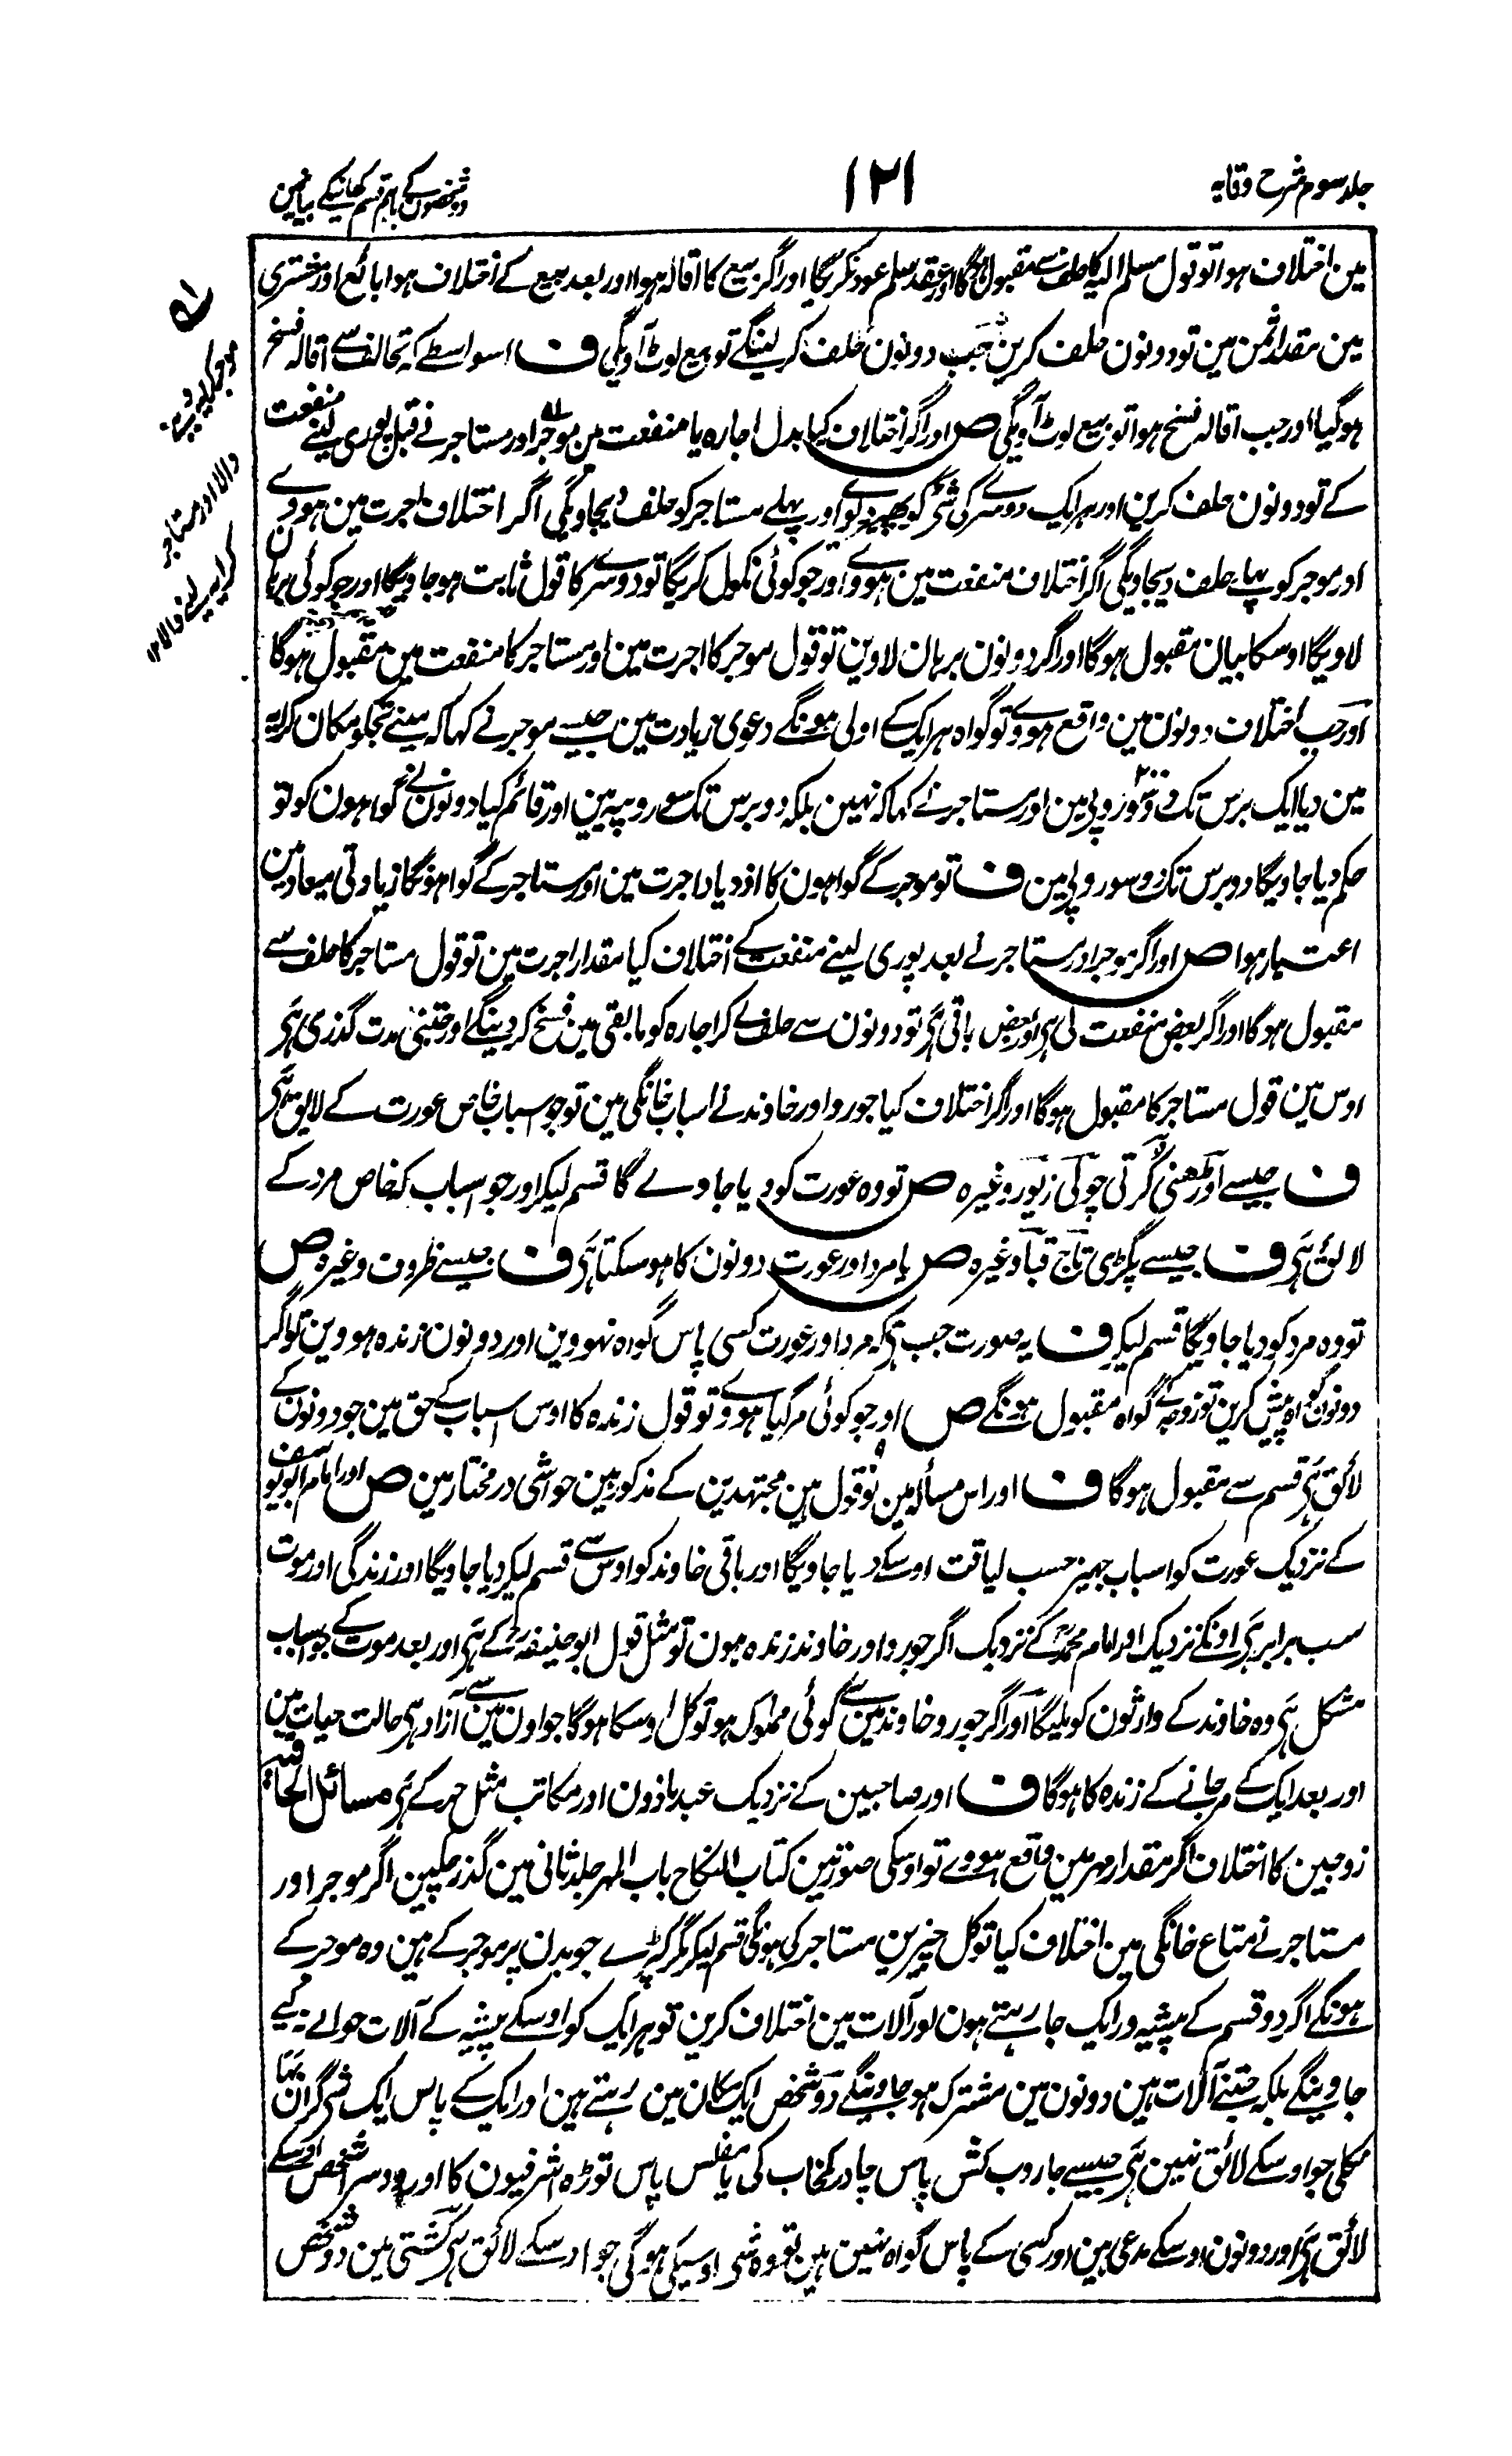 جلد سوم شرح وقایہ
۱۲۱
دو شخصوں کے باہم قسم کھانیکے بیانمین
مین اختلاف ہوا تو قول مسلم الیہ کا حلف سے مقبول ہوگا اور عقد سلم عود نکریگا اور اگر بیع کا اقالہ ہوا اور بعد بیع کے اختلاف ہوا بائع اور مشتری
مین مقدار ثمن مین تو دونون حلف کرین جب دونون حلف کر لینگے تو بیع لوٹ آویگی ف اسواسطے کہ تحالف سے اقالہ فسخ
ہوگیا اور جب اقالہ فسخ ہوا تو بیع لوٹ آویگی ص اور اگر اختلاف کیا بدل اجارہ یا منفعت مین موجر اور مستاجر نے قبل پوری لینے منفعت
کے تو دونون حلف کرین اور ہر ایک دوسرے کی شئ کو پھیر دیوے اور پہلے مستاجر کو حلف دیجاویگی اگر اختلاف اجرت مین ہووے
اور موجر کو پہلے حلف دیجاویگی اگر اختلاف منفعت مین ہووے اور جو کوئی نکول کریگا تو دوسرے کا قول ثابت ہوجاویگا اور جو کوئی برہان
لاویگا اوسکا بیان مقبول ہوگا اور اگر دونون برہان لاوین تو قول موجر کا اجرت مین اور مستاجر کا منفعت مین مقبول ہوگا
اور جب اختلاف دونون مین واقع ہووے تو گواہ ہر ایک کے اولی ہونگے دعوی زیادت مین جیسے موجر نے کہا کہ مینے تجکو مکان کرایہ
مین دیا ایک برس تک دو سو روپے مین اور مستاجر نے کہا کہ نہین بلکہ دو برس تک سو روپیہ مین اور قائم کیا دونون نے گواہون کو تو
حکم دیا جاویگا دو برس تک دو سو روپے مین ف تو موجر کے گواہون کا ازدیاد اجرت مین اور مستاجر کے گواہونکا زیادتی میعاد مین
اعتبار ہوا ص اور اگر موجر اور مستاجر نے بعد پوری لینے منفعت کے اختلاف کیا مقدار اجرت مین تو قول مستاجر کا حلف سے
مقبول ہوگا اور اگر بعض منفعت لی ہی اور بعض باقی ہی تو دونون سے حلف لے کر اجارہ کو مابقی مین فسخ کر دینگے اور جتنی مدت گذری ہی
اوس مین قول مستاجر کا مقبول ہوگا اور اگر اختلاف کیا جورو اور خاوند نے اسباب خانگی مین تو جو اسباب خاص عورت کے لایق ہی
ف جیسے اوڑھنی کرتی چوکی زیور وغیرہ ص تو وہ عورت کو دیا جاوے گا قسم لیکر اور جو اسباب کہ خاص مرد کے
لائق ہی ف جیسے پگڑی تاج قبا وغیرہ ص یا مرد اور عورت دونون کا ہوسکتا ہی ف جیسے ظروف وغیرہ ص
تو وہ مرد کو دیا جاویگا قسم لیکر ف یہ صورت جب ہی کہ مرد اور عورت کسی پاس گواہ نہووین اور دونون زندہ ہووین تو اگر
دونون گواہ پیش کرین تو زوجہ کے گواہ مقبول ہونگے ص اور جو کوئی مر گیا ہووے تو قول زندہ کا اوس اسباب کے حق مین جو دونون کے
لائق ہی قسم سے مقبول ہوگا ف اور اس مسألہ مین نو قول ہین مجتہدین کے مذکور ہین حواشی در مختار مین ص اور امام ابو یوسف
کے نزدیک عورت کو اسباب جہیز حسب لیاقت اوسکے دیا جاویگا اور باقی خاوند کو اوس سے قسم لیکر دیا جاویگا اور زندگی اور موت
سب برابر ہی اونکے نزدیک اور امام محمد کے نزدیک اگر جورو اور خاوند زندہ ہون تو مثل قول ابو حنیفہ کے ہی اور بعد موت کے جو اسباب
مشکل ہی وہ خاوند کے وارثون کو ملیگا اور اگر جورو خاوند مین سے کوئی مملوک ہو تو کل اوسکا ہوگا جو اون مین سے آزاد ہی حالت حیات مین
اور بعد ایک کے مرجانے کے زندہ کا ہوگا ف اور صاحبین کے نزدیک عبد ماذون اور مکاتب مثل حر کے ہی مسائل الحاقیہ
زوجین کا اختلاف اگر مقدار مہر مین واقع ہووے تو اوسکی صورتین کتاب النکاح باب المہر جلد ثانی مین گذر چکین اگر موجر اور
مستاجر نے متاع خانگی مین اختلاف کیا تو کل چیزین مستاجر کی ہونگی قسم لیکر مگر کپڑے جو بدن پر موجر کے ہین وہ موجر کے
ہونگے اگر دو قسم کے پیشہ ور ایک جا رہتے ہون اور آلات مین اختلاف کرین تو ہر ایک کو اوسکے پیشہ کے آلات حوالے نہ کیے
جاوینگے بلکہ جتنے آلات ہین دونون مین مشترک ہوجاوینگے دو شخص ایک مکان مین رہتے ہین اور ایک کے پاس ایک شی گران بہا
نکلی جو اوسکے لائق نہین ہی جیسے جاروب کش پاس چادر کمخاب کی یا مفلس پاس توڑہ اشرفیون کا اور دوسرا شخص اوسکے
لائق ہی اور دونون اوسکے مدعی ہین اور کسی کے پاس گواہ نہین ہین تو وہ شی اوسیکی ہوگی جو اوسکے لائق ہی کشتی مین دو شخص
موجر کرایہ دینے
والا اور مستاجر
کرایہ لینے والا ۱۲